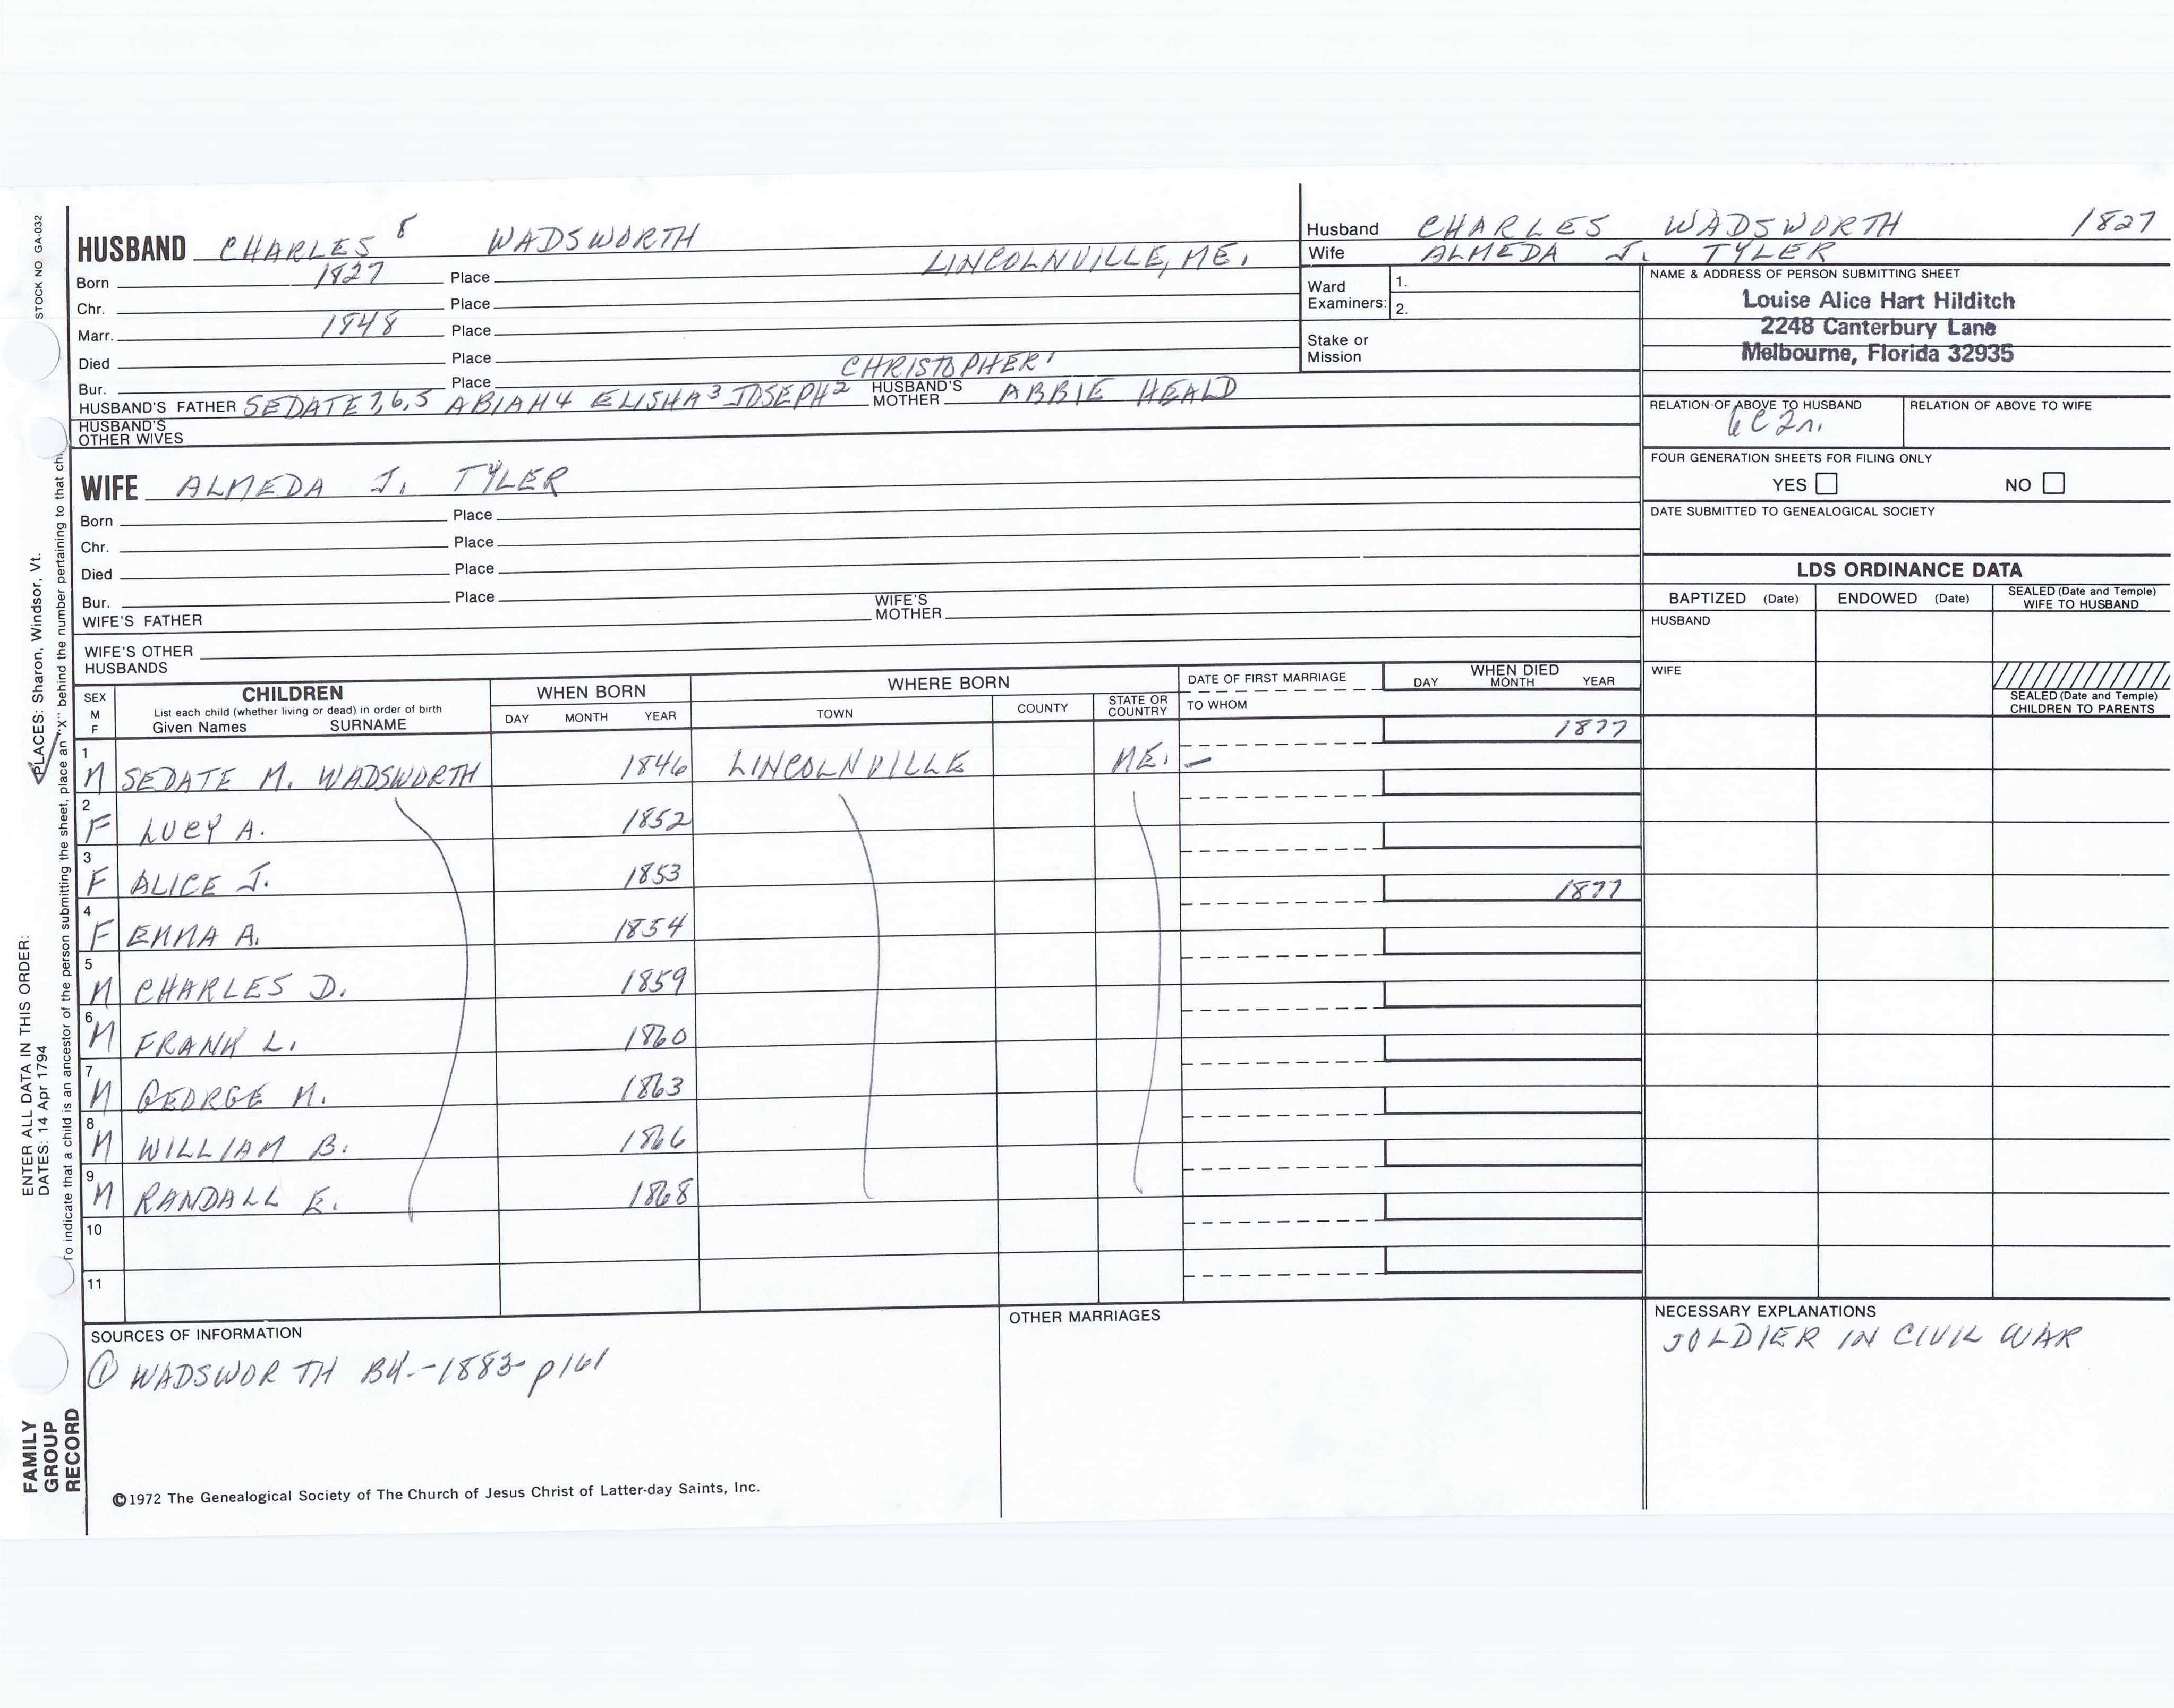 STOCK NO. GA-032
HUSBAND CHARLES 8 WADSWORTH
Born 1827 Place LINCOLNVILLE, ME.
Chr. Place
Marr. 1848 Place
Died Place
Bur. Place CHRISTOPHER 1
HUSBAND'S FATHER SEDATE 7,6,5 ABIAH 4 ELISHA 3 JOSEPH 2 HUSBAND'S MOTHER ABBIE HEALD
HUSBAND'S OTHER WIVES
WIFE ALMEDA J. TYLER
Born Place
Chr. Place
Died Place
Bur. Place
WIFE'S FATHER WIFE'S MOTHER
WIFE'S OTHER HUSBANDS
Husband CHARLES WADSWORTH 1827
Wife ALMEDA J. TYLER
Ward Examiners: 1.
2.
Stake or Mission
NAME & ADDRESS OF PERSON SUBMITTING SHEET
Louise Alice Hart Hilditch
2248 Canterbury Lane
Melbourne, Florida 32935
RELATION OF ABOVE TO HUSBAND RELATION OF ABOVE TO WIFE
6C2r.
FOUR GENERATION SHEETS FOR FILING ONLY
YES NO
DATE SUBMITTED TO GENEALOGICAL SOCIETY
LDS ORDINANCE DATA
BAPTIZED (Date) ENDOWED (Date) SEALED (Date and Temple) WIFE TO HUSBAND
HUSBAND
WIFE
SEALED (Date and Temple) CHILDREN TO PARENTS
SEX M F
CHILDREN
List each child (whether living or dead) in order of birth
Given Names SURNAME
WHEN BORN
DAY MONTH YEAR
WHERE BORN
TOWN COUNTY STATE OR COUNTRY
DATE OF FIRST MARRIAGE
TO WHOM
WHEN DIED
DAY MONTH YEAR
1 M SEDATE M. WADSWORTH 1846 LINCOLNVILLE ME. — 1877
2 F LUCY A. 1852
3 F ALICE J. 1853
4 F EMMA A. 1854 1877
5 M CHARLES D. 1859
6 M FRANK L. 1860
7 M GEORGE M. 1863
8 M WILLIAM B. 1866
9 M RANDALL E. 1868
10
11
SOURCES OF INFORMATION
① WADSWORTH BK.-1883-p161
OTHER MARRIAGES
NECESSARY EXPLANATIONS
SOLDIER IN CIVIL WAR
©1972 The Genealogical Society of The Church of Jesus Christ of Latter-day Saints, Inc.
ENTER ALL DATA IN THIS ORDER:
DATES: 14 Apr 1794
PLACES: Sharon, Windsor, Vt.
To indicate that a child is an ancestor of the person submitting the sheet, place an "X" behind the number pertaining to that
FAMILY
GROUP
RECORD